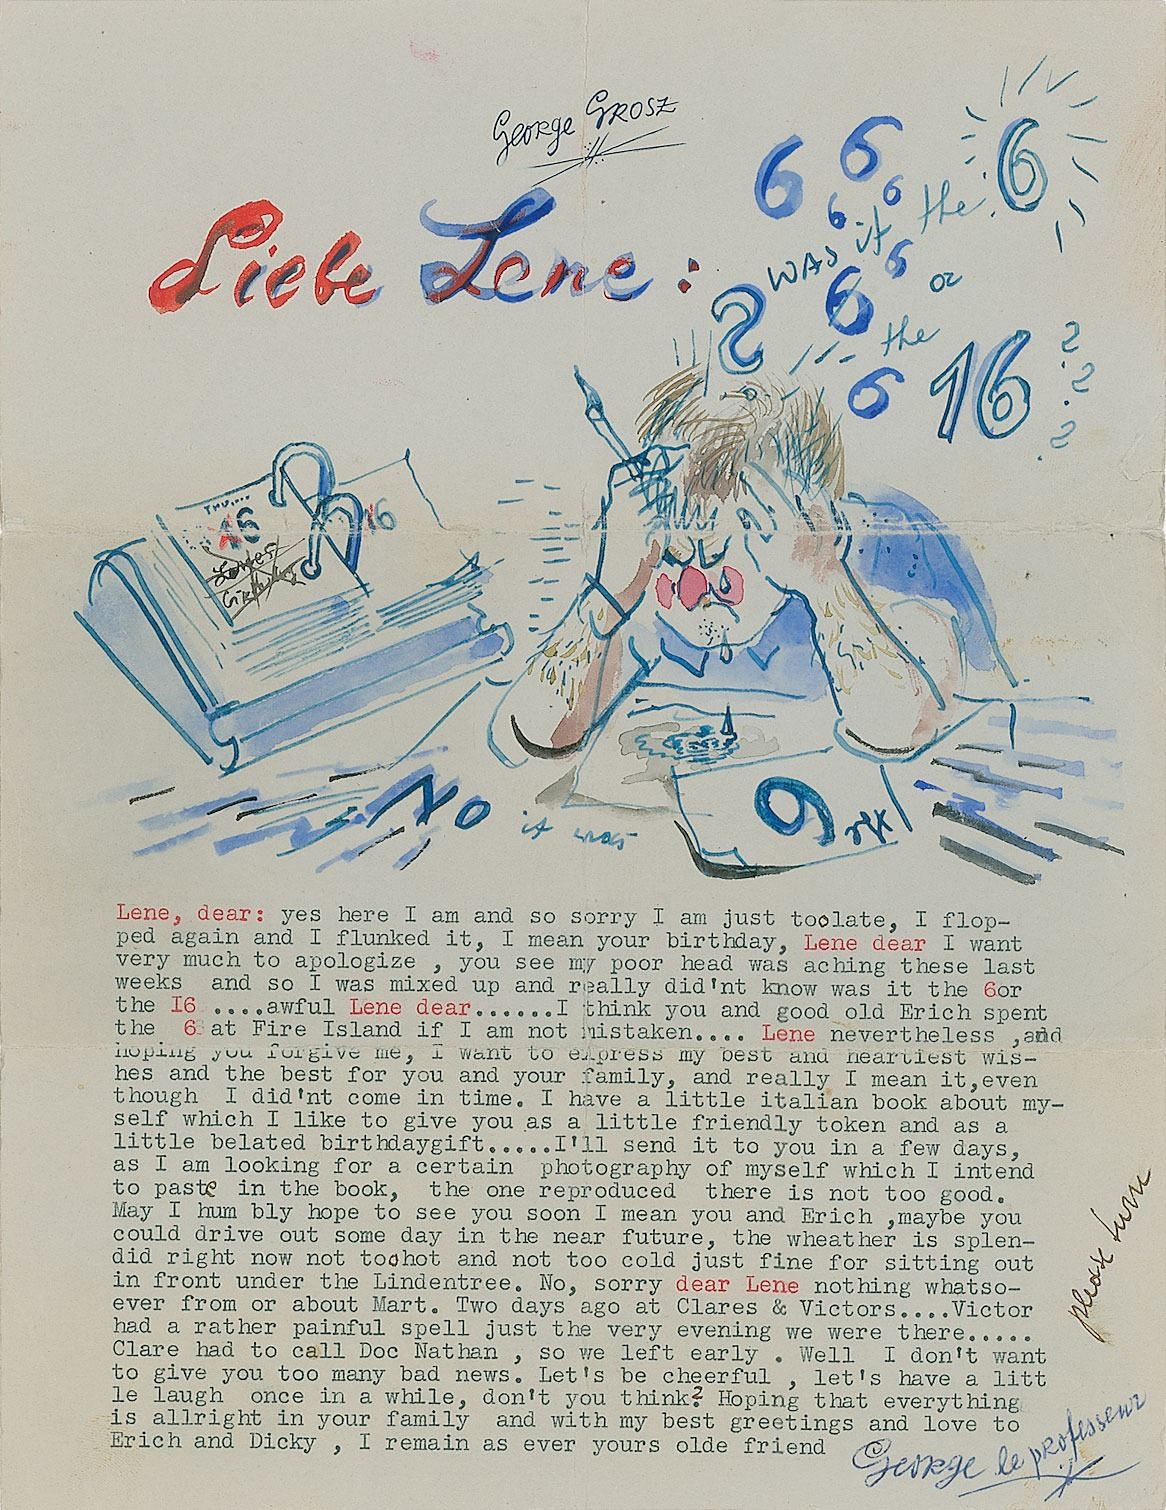 George Grosz
Liebe Lene:
6 6 6 6 6 6 6
was it the 6
or
the 16
? ? ?
?
16
16
No it was
6
Lene, dear: yes here I am and so sorry I am just toolate, I flop-
ped again and I flunked it, I mean your birthday, Lene dear I want
very much to apologize , you see my poor head was aching these last
weeks and so I was mixed up and really did'nt know was it the 6or
the I6 ....awful Lene dear......I think you and good old Erich spent
the 6 at Fire Island if I am not mistaken.... Lene nevertheless ,and
hoping you forgive me, I want to express my best and heartiest wis-
hes and the best for you and your family, and really I mean it,even
though I did'nt come in time. I have a little italian book about my-
self which I like to give you as a little friendly token and as a
little belated birthdaygift.....I'll send it to you in a few days,
as I am looking for a certain photography of myself which I intend
to paste in the book, the one reproduced there is not too good.
May I hum bly hope to see you soon I mean you and Erich ,maybe you
could drive out some day in the near future, the wheather is splen-
did right now not toohot and not too cold just fine for sitting out
in front under the Lindentree. No, sorry dear Lene nothing whatso-
ever from or about Mart. Two days ago at Clares & Victors....Victor
had a rather painful spell just the very evening we were there.....
Clare had to call Doc Nathan , so we left early . Well I don't want
to give you too many bad news. Let's be cheerful , let's have a litt
le laugh once in a while, don't you think? Hoping that everything
is allright in your family and with my best greetings and love to
Erich and Dicky , I remain as ever yours olde friend
George le professeur
please turn